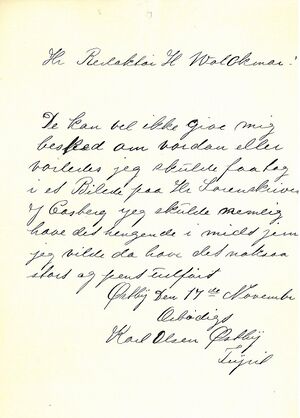 Hr Redaktør H Wolckmar!
De kan vel ikke give mig
besked om vordan eller
vorledes jeg skulde faa tag
i et Bilede paa Hr Sorenskriver
Casberg jeg skulde nemlig
have det hengende i mitt hjem
jeg vilde da have det noksaa
stort og pent utført
Østby den 17de November
Ærbødigst
Karl Olsen Østby
Trysil